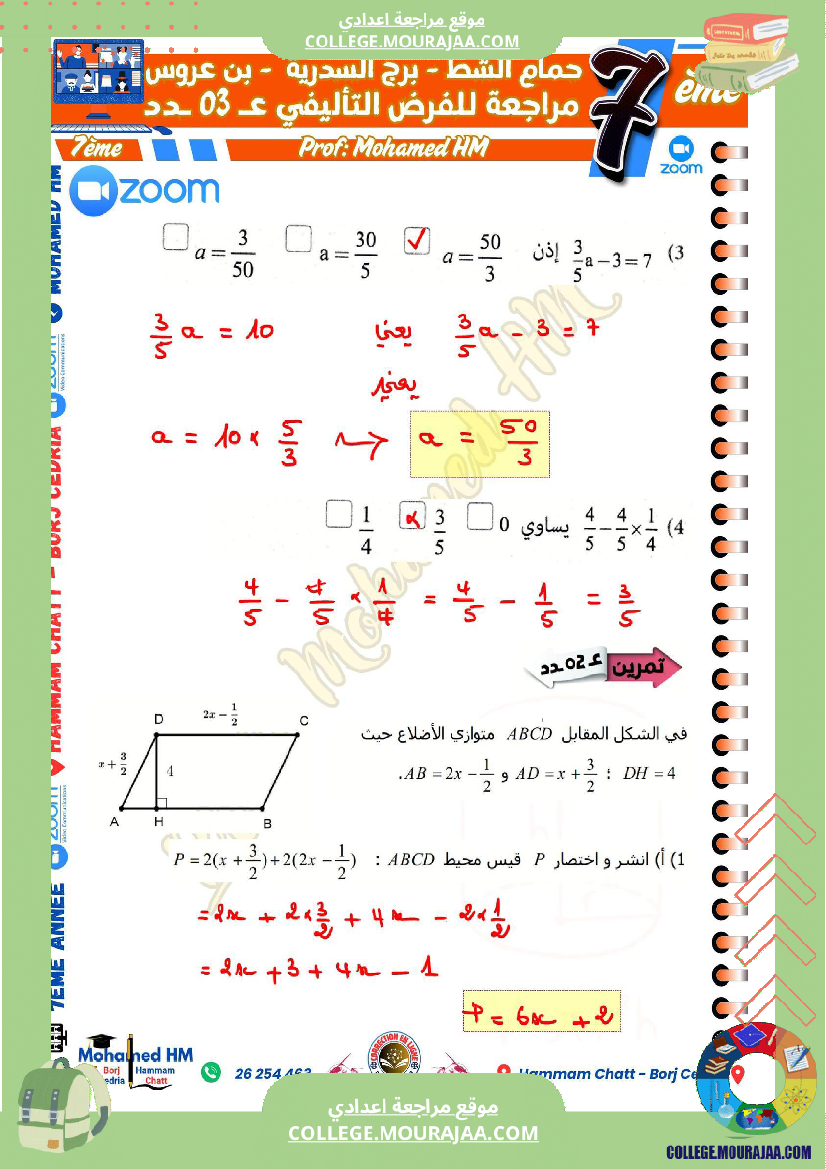 موقع مراجعة اعدادي
COLLEGE.MOURAJAA.COM
حمام الشط - برج السدرية - بن عروس
مراجعة للفرض التأليفي عـ 03 ـدد
7 ème
7ème Prof: Mohamed HM
zoom
zoom
3) 3/5 a − 3 = 7 إذن a = 50/3 ✓ a = 30/5 a = 3/50
3/5 a − 3 = 7 يعني 3/5 a = 10
يعني
a = 10 × 5/3 ⇝ a = 50/3
4) 4/5 − 4/5 × 1/4 يساوي 0 3/5 × 1/4
4/5 − 4/5 × 1/4 = 4/5 − 1/5 = 3/5
تمرين عـ 02 ـدد
في الشكل المقابل ABCD متوازي الأضلاع حيث
DH = 4 : AD = x + 3/2 و AB = 2x − 1/2.
D 2x − 1/2 C
x + 3/2 4
A H B
1) أ) انشر و اختصار P قيس محيط ABCD : P = 2(x + 3/2) + 2(2x − 1/2)
= 2x + 2 × 3/2 + 4x − 2 × 1/2
= 2x + 3 + 4x − 1
P = 6x + 2
Mohamed HM
7EME ANNEE
zoom
HAMMAM CHATT - BORJ CEDRIA
zoom
MOHAMED HM
Mohamed HM
Borj Hammam
Chatt
26 254 463
CORRECTION EN LIGNE
Hammam Chatt - Borj Ce
موقع مراجعة اعدادي
COLLEGE.MOURAJAA.COM
COLLEGE.MOURAJAA.COM